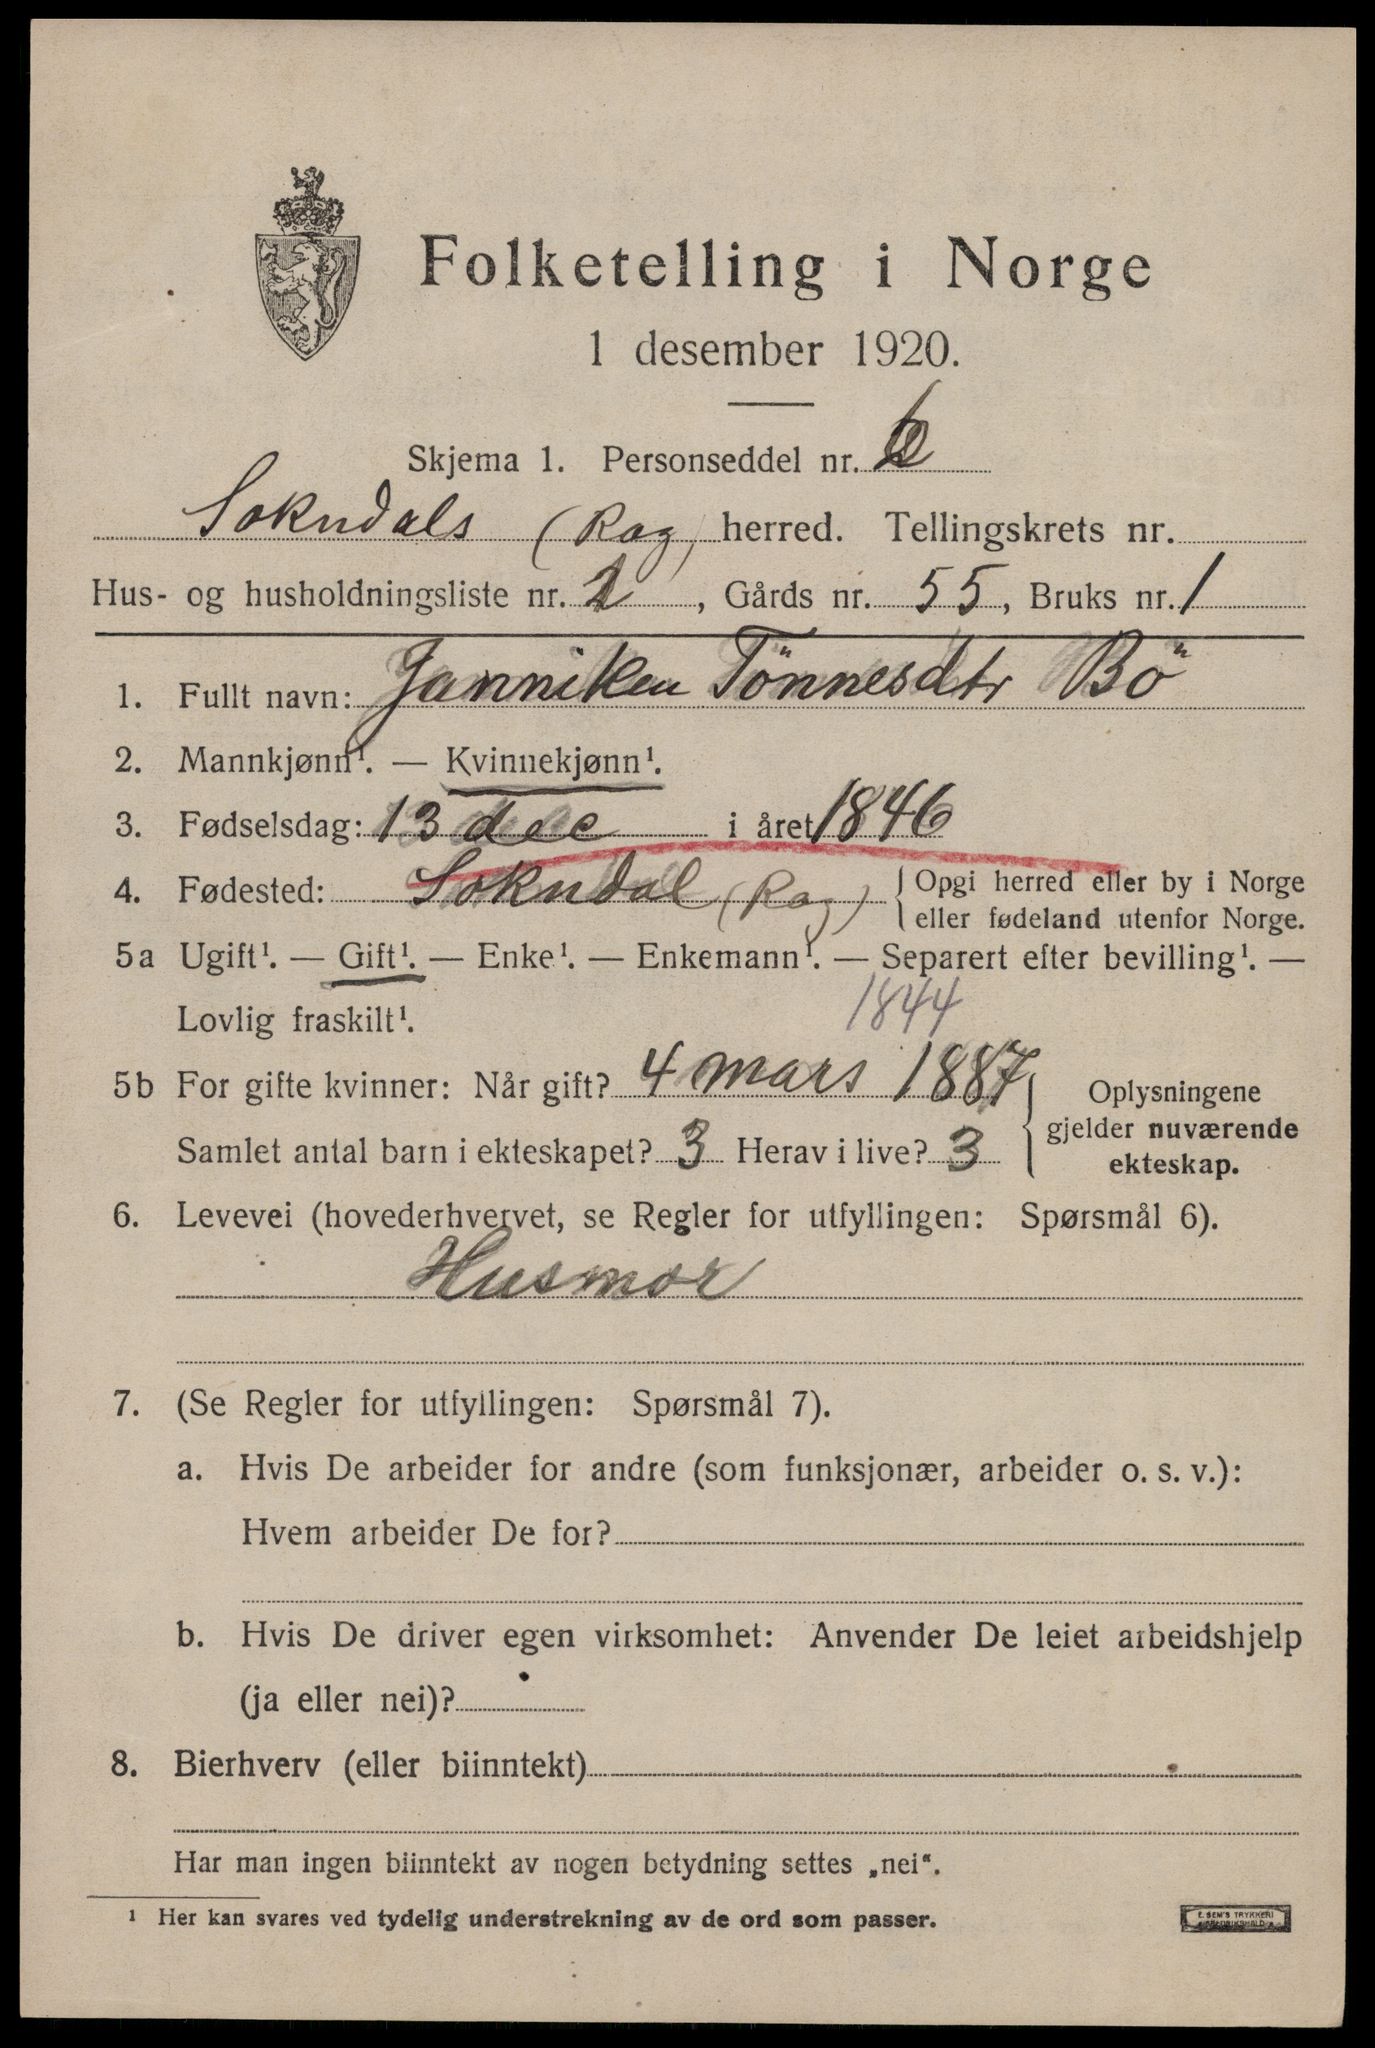 Folketelling i Norge
1 desember 1920.
Skjema 1. Personseddel nr. 6
Sokndals (Rog) herred. Tellingskrets nr.
Hus- og husholdningsliste nr. , Gårds nr. 55, Bruks nr. 1
1. Fullt navn: Janniken Tönnesdtr Bö
2. Mannkjønn¹. — Kvinnekjønn¹.
3. Fødselsdag: 13 dec i året 1846
4. Fødested: Sokndal (Rog) Opgi herred eller by i Norge
eller fødeland utenfor Norge.
5a Ugift¹. — Gift¹. — Enke¹. — Enkemann¹. — Separert efter bevilling¹. —
Lovlig fraskilt¹.
1844
5b For gifte kvinner: Når gift? 4 mars 1887 Oplysningene
gjelder nuværende
Samlet antal barn i ekteskapet? 3 Herav i live? 3 ekteskap.
6. Levevei (hovederhvervet, se Regler for utfyllingen: Spørsmål 6).
Husmor
7. (Se Regler for utfyllingen: Spørsmål 7).
a. Hvis De arbeider for andre (som funksjonær, arbeider o. s. v.):
Hvem arbeider De for?
b. Hvis De driver egen virksomhet: Anvender De leiet arbeidshjelp
(ja eller nei)?
8. Bierhverv (eller biinntekt)
Har man ingen biinntekt av nogen betydning settes „nei“.
¹ Her kan svares ved tydelig understrekning av de ord som passer.
E. SEM'S TRYKKERI
FREDRIKSHALD